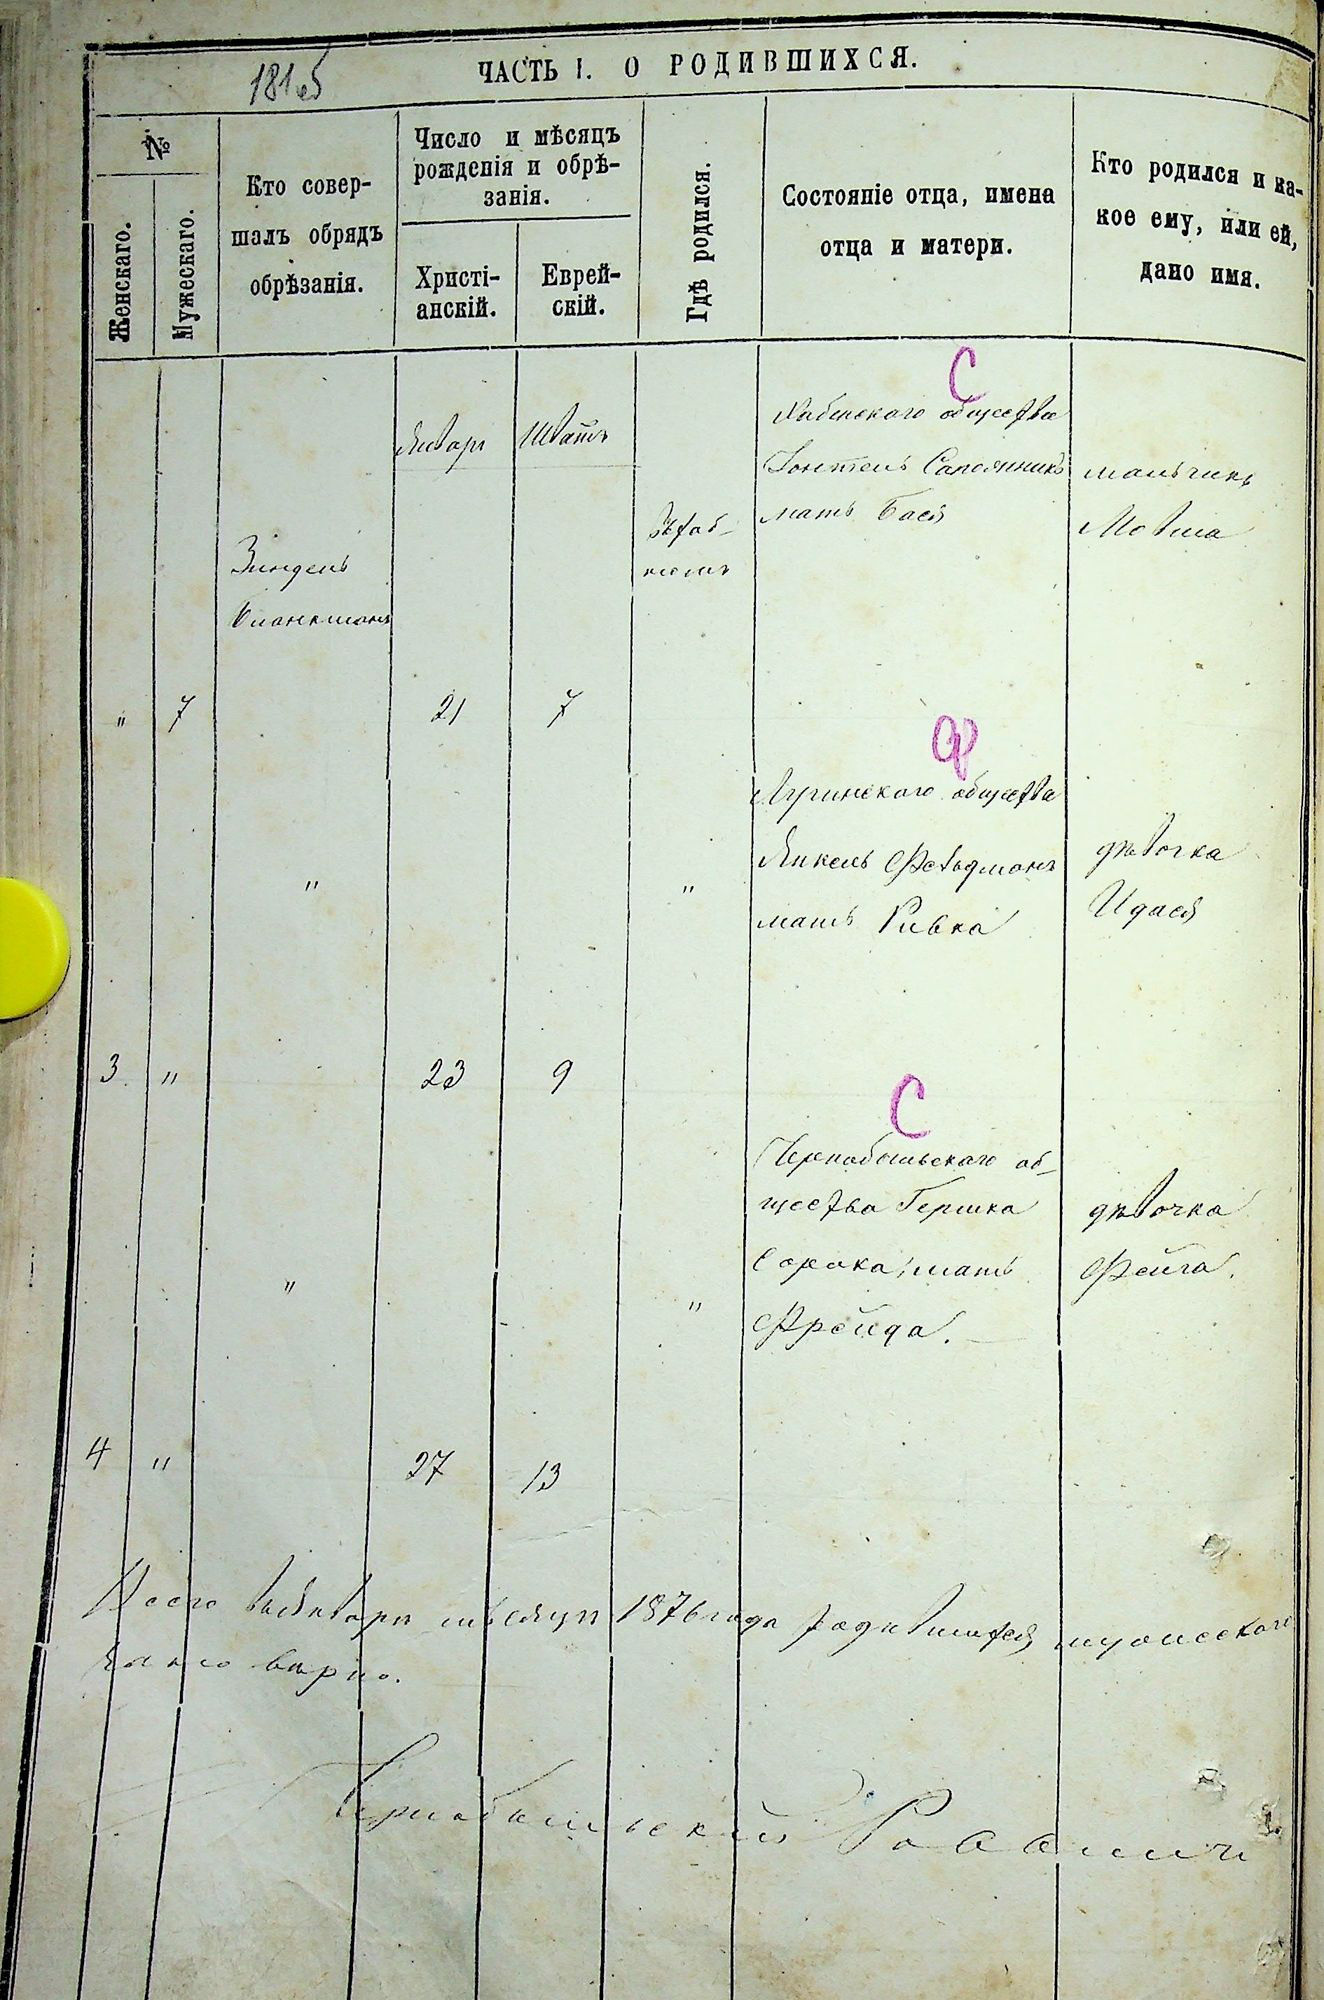 181об
ЧАСТЬ I. О РОДИВШИХСЯ.
№
Женскаго.
Мужескаго.
Кто совер-
шалъ обрядъ
обрѣзанія.
Число и мѣсяцъ
рожденія и обрѣ-
занія.
Христі-
анскій.
Еврей-
скій.
Гдѣ родился.
Состояніе отца, имена
отца и матери.
Кто родился и ка-
кое ему, или ей,
дано имя.
С
Январь
Шватъ
Хабенскаго общества
мать Бася
мальчикъ
Мовша
Зиндель
" 7 21 7
Ф
общества
Янкель Фельдманъ
мать Ривка
дѣвочка
Идася
" "
3 " 23 9
С
Чернобыльскаго об-
щества Гершка
Сорока, мать
Фрейда.
дѣвочка
Фейга.
" "
4 " 27 13
Всего въ Январѣ мѣсяцѣ 1876 года родившихся мужескаго
вѣрно.
Чернобыльскій Раввинъ